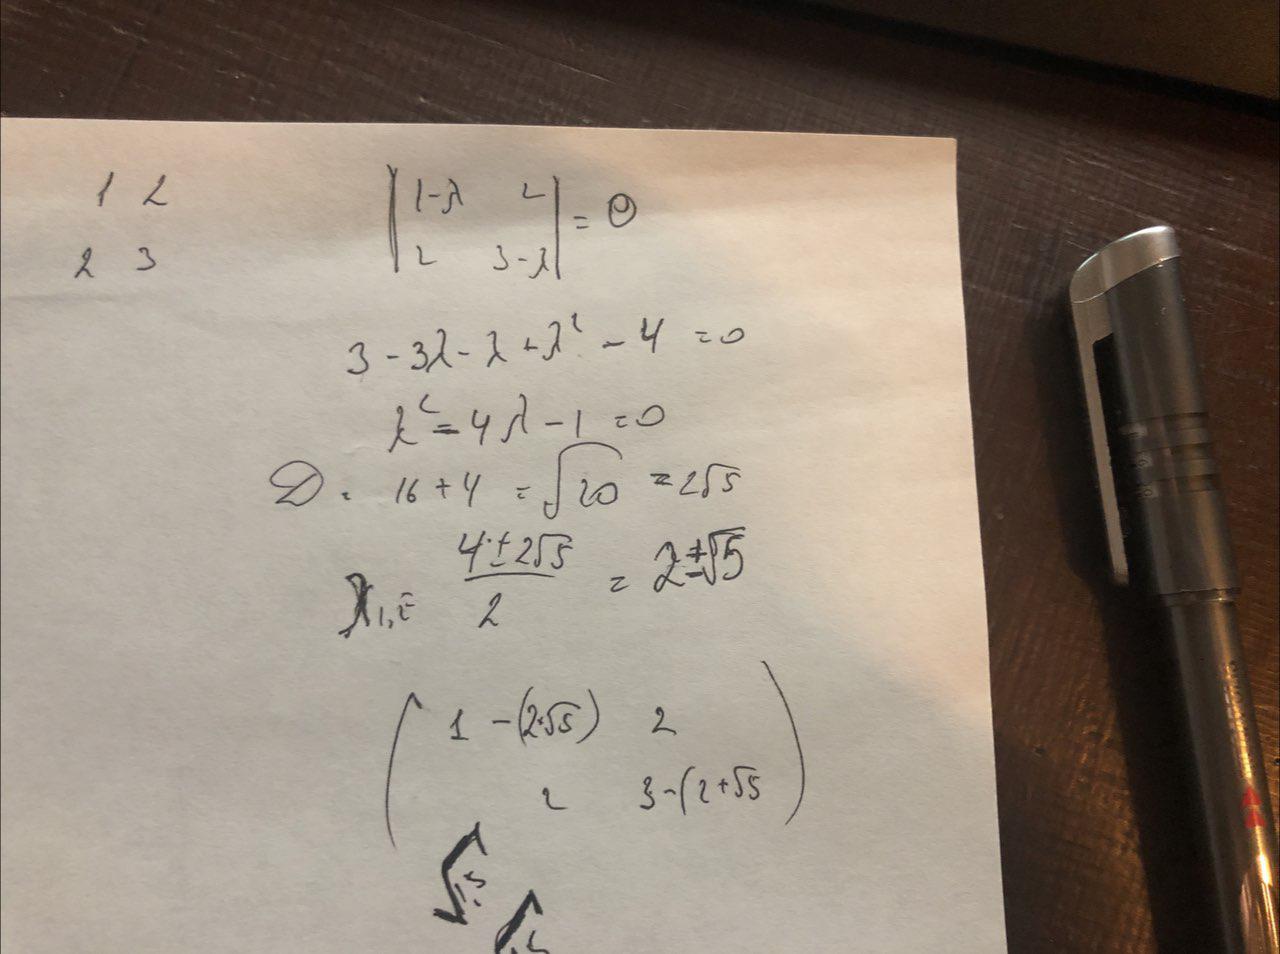 1 2
2 3
|1-λ 2|
|2 3-λ| = 0
3 - 3λ - λ + λ² - 4 = 0
λ² = 4λ - 1 = 0
D = 16 + 4 = √20 = 2√5
λ₁,₂ = (4 ± 2√5)/2 = 2 ± √5
(1 -(2+√5) 2
2 3-(2+√5)